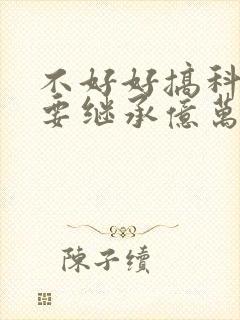 不好好搞科
要继承億萬
陳子續